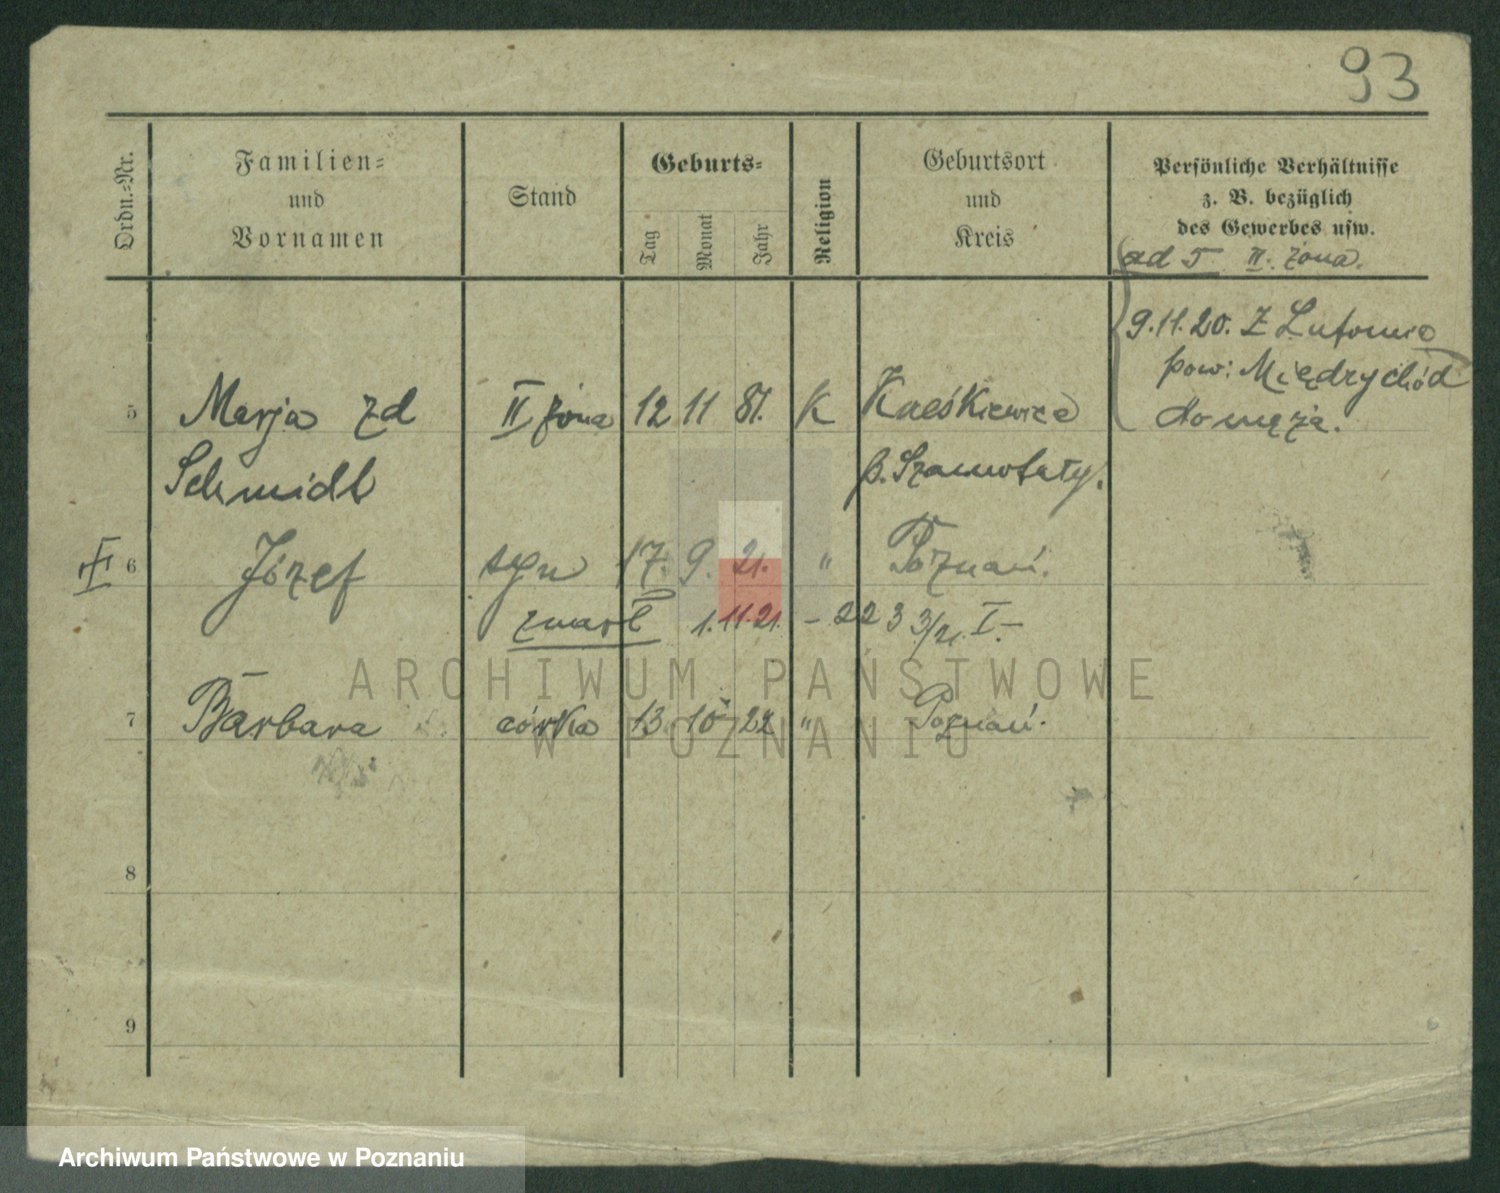 93
Ordn.-Nr.
Familien-
und
Vornamen
Stand
Geburts-
Tag
Monat
Jahr
Religion
Geburtsort
und
Kreis
Persönliche Verhältnisse
z. B. bezüglich
des Gewerbes usw.
ad 5 II. żona.
9.11.20. Z Lutomia
pow: Międzychód
do męża.
5 Marja zd II żona 12 11 81. K
Schmidt p. Szamotuły.
6 Józef syn 17. 9. 21. " Poznań.
zmarł 1.11.21. – 223 3/21. I.–
7 Barbara córka 13. 10. 22 " Poznań.
8
9
ARCHIWUM PAŃSTWOWE
W POZNANIU
Archiwum Państwowe w Poznaniu